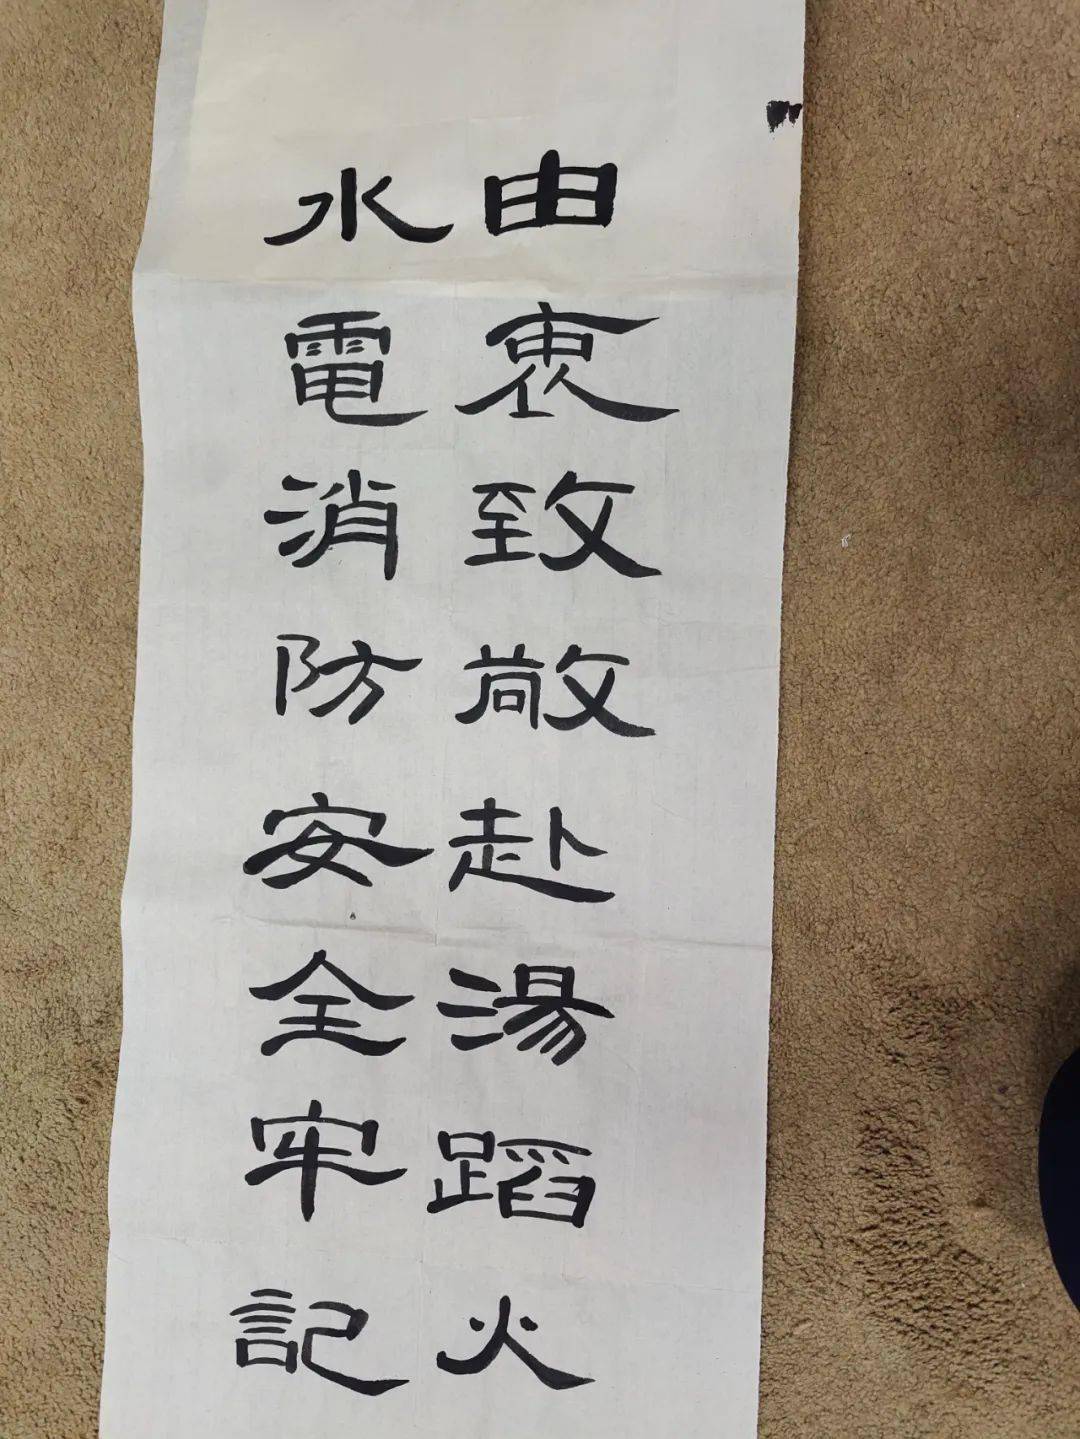 由衷致敞赴湯蹈火
水電消防安全牢記